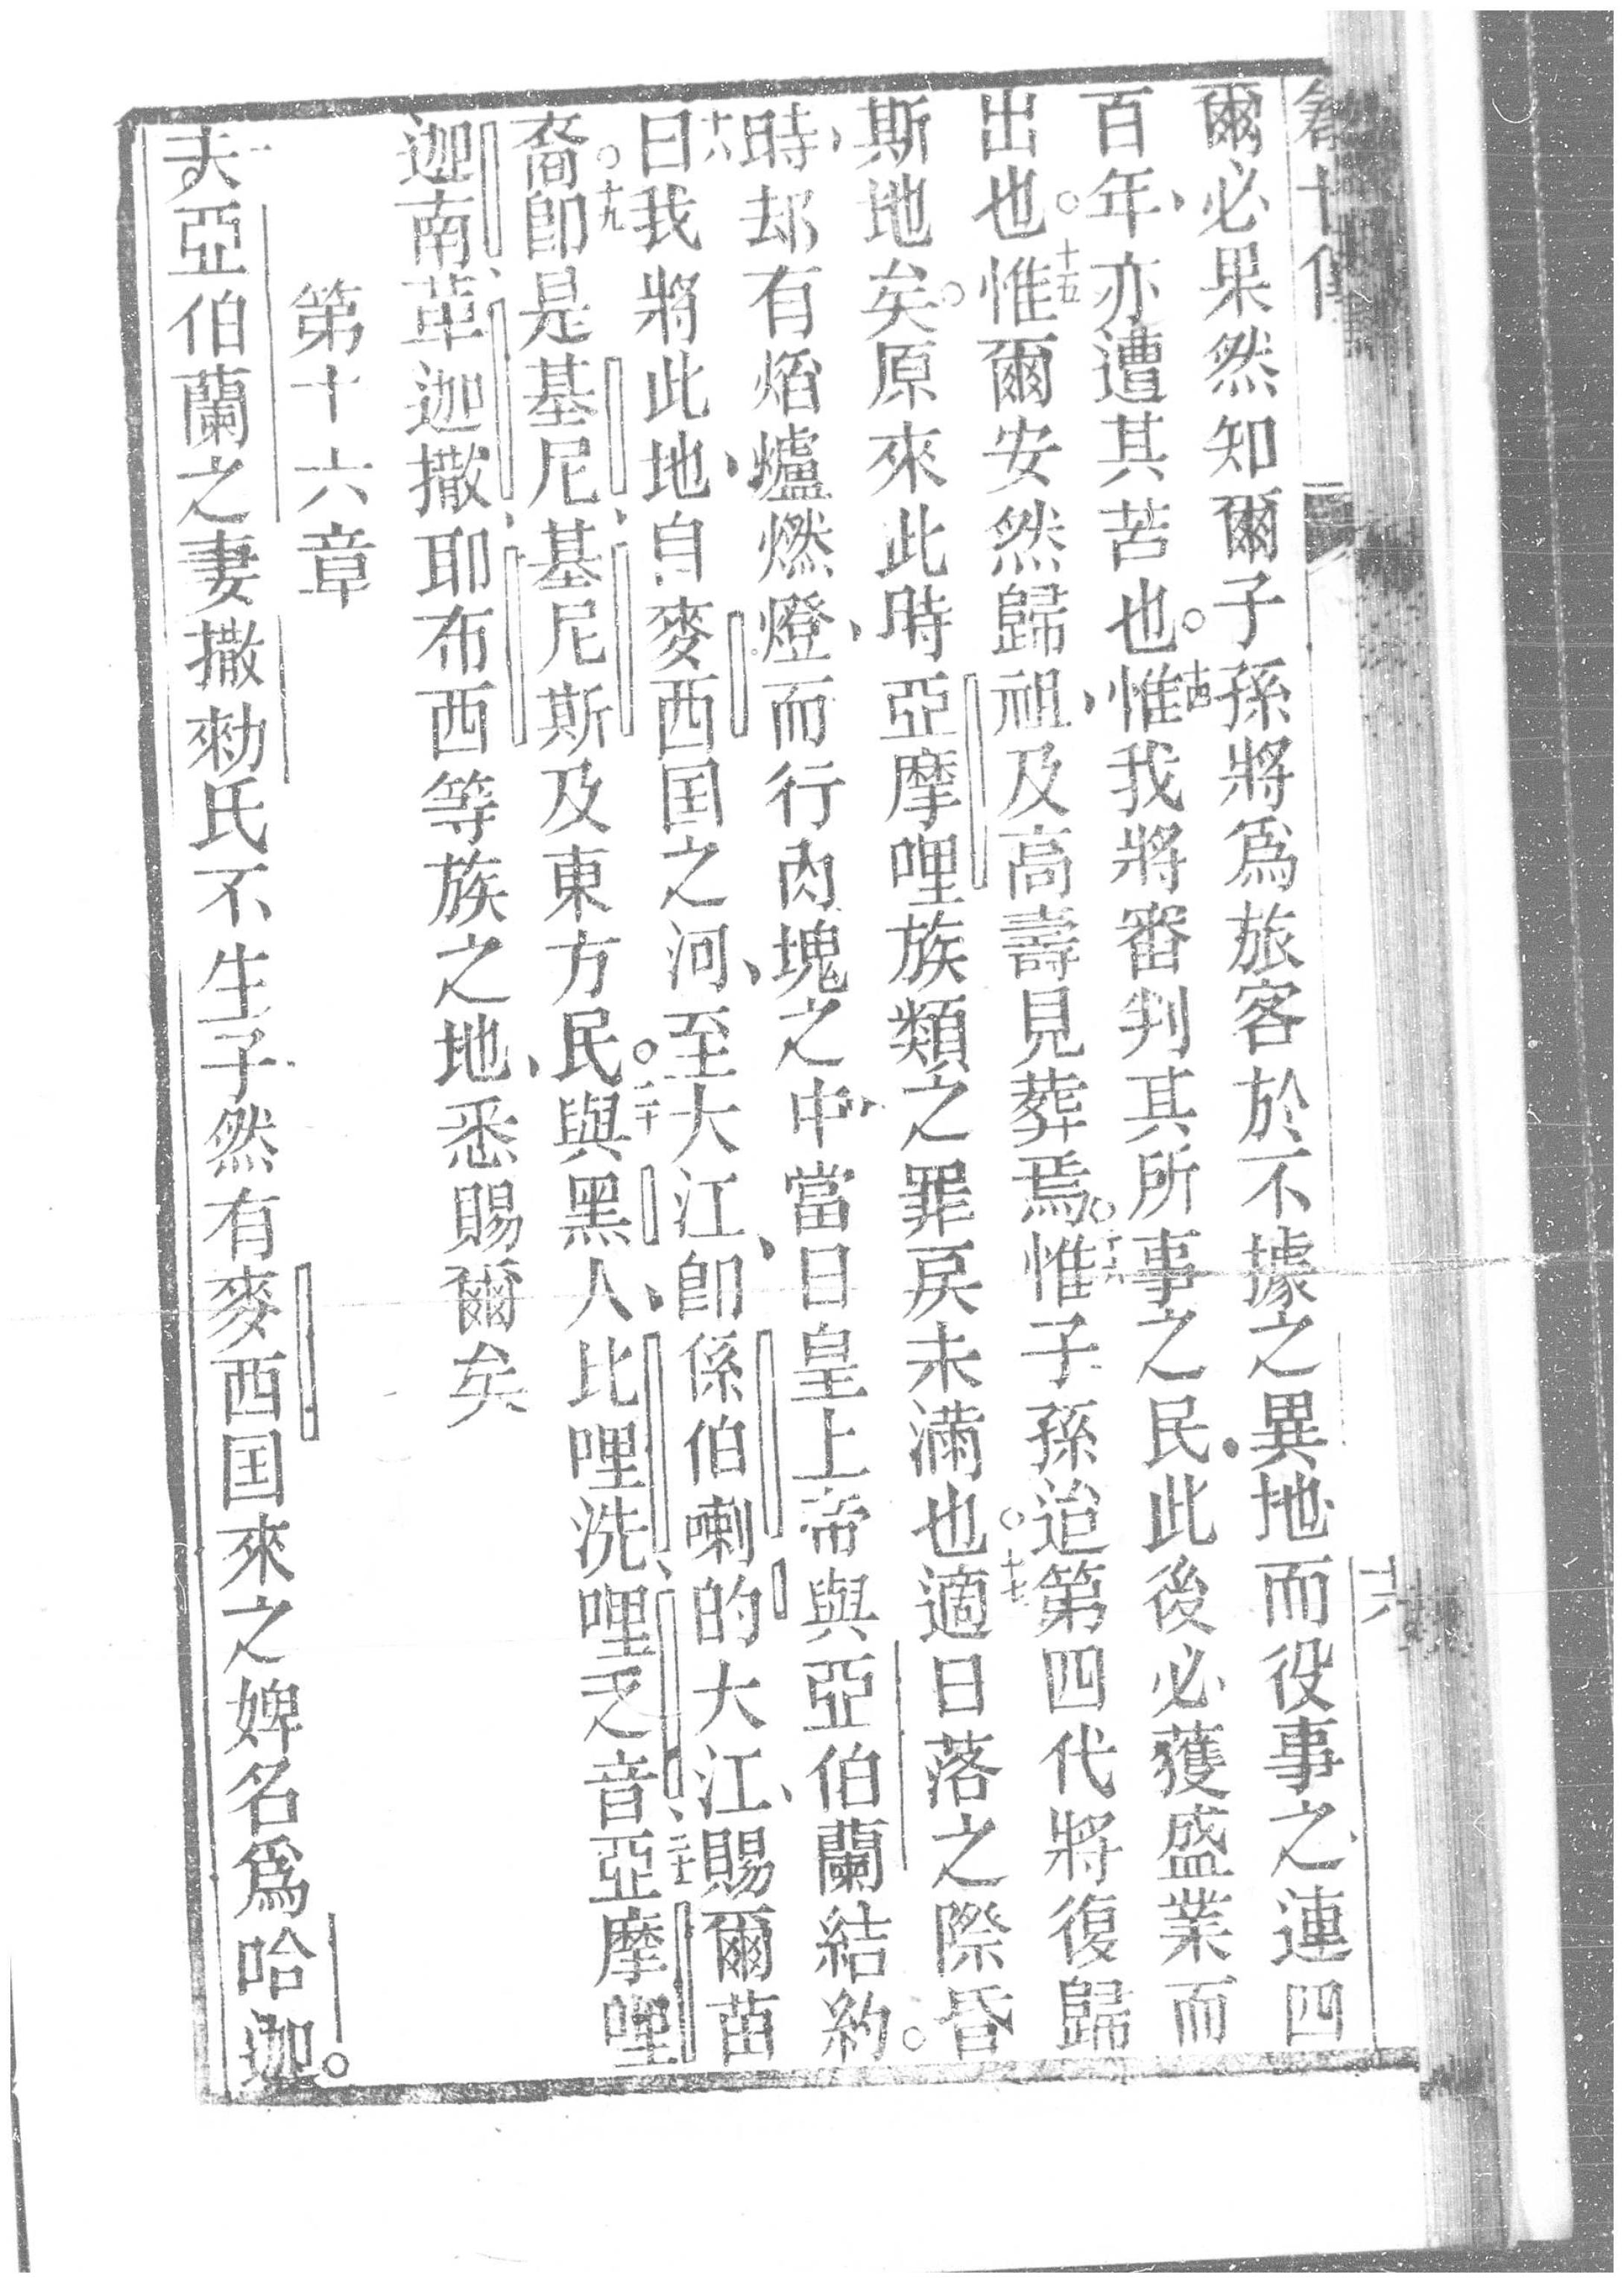 爾必果然知爾子孫將爲旅客於不據之異地而役事之連四
百年、亦遭其苦也。十四惟我將審判其所事之民此後必獲盛業而
出也。十五惟爾安然歸祖、及高壽見葬焉。十六惟子孫迨第四代將復歸
斯地矣。原來此時亞摩哩族類之罪戾未滿也。十七適日落之際昏
時、却有熖爐燃燈、而行肉塊之中、當日皇上帝與亞伯蘭結約。
十八曰我將此地、自麥西囯之河、至大江、卽係伯喇的大江、賜爾苗
裔。十九卽是基尼、基尼斯及東方民。二十與黑人、比哩洗、哩乏音、二十一亞摩哩
迦南、革迦撒、耶布西等族之地、悉賜爾矣
第十六章
一夫亞伯蘭之妻撒勑氏不生子然有麥西囯來之婢名爲哈迦。
十六